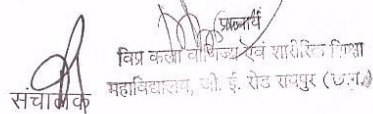 प्राचार्य
विप्र कला वाणिज्य एवं शारीरिक शिक्षा
संचालक महाविद्यालय, जी. ई. रोड रायपुर (छ.ग.)